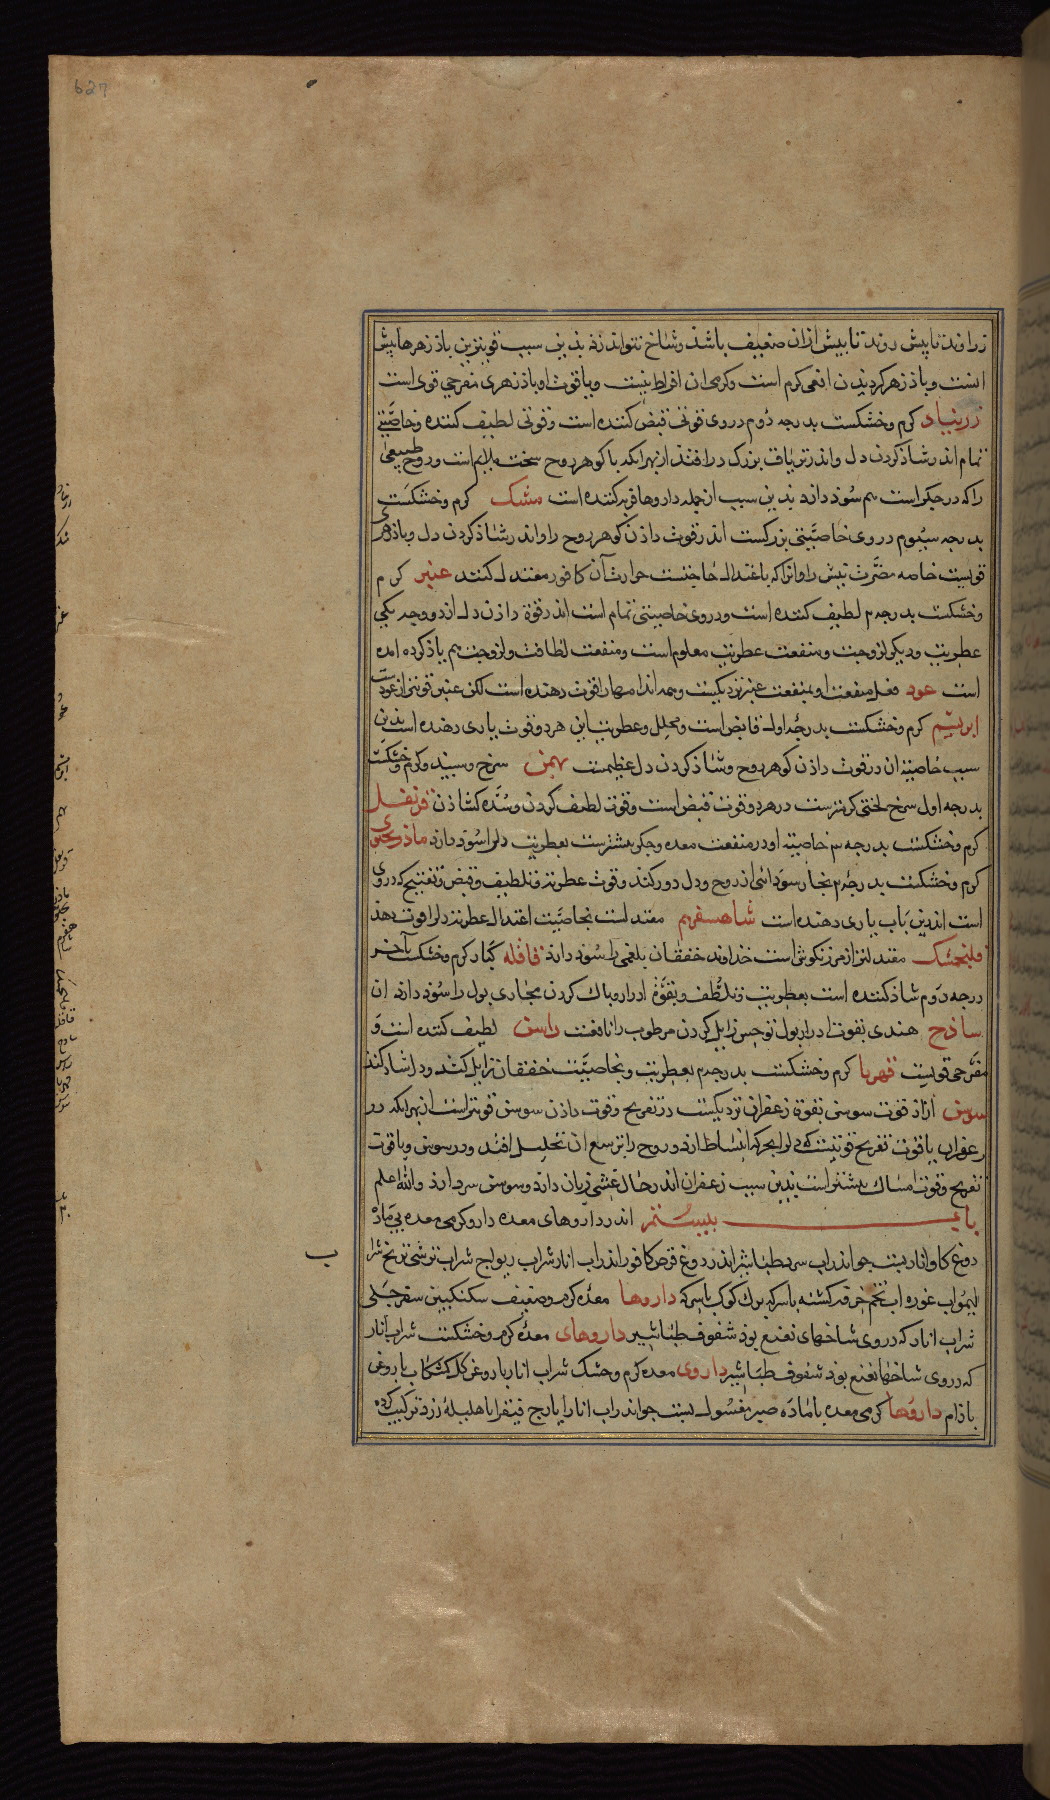 627
زراوند تا پیش روند تا پیش ازان ضعیف باشذ وشاخ نتواند زذ بذین سبب قویترین باذزهرها بیش
است و باذزهر گزیدن افعی گرم است وگرمی ان افراط نیست وبا قوت او باذزهری مفرحی قوی است
زرنباد گرم وخشکست بدرجه دوم در وی قوتی قبض کننده است وقوتی لطیف کننده وخاصیتی
تمام اندر شاذ کردن دل واندر تریاق بزرگ در افتذ ازبهر انکه با گوهر روح سخت ملایم است وروح طبیعی
را که در جگر است هم سوذ دارد بذین سبب از جمله داروها فربه کننده است مشک گرم وخشکست
بدرجه سیوم در وی خاصیتی بزرگست اندر قوت داذن گوهر روح را واندر شاذ کردن دل وباذزهر
قویست خاصه مضرت بیش را وانرا که باعتدال حاجتست حرارت آن کافور معتدل کند عنبر گرم
وخشکست بدرجه م لطیف کننده است ودر وی خاصیتی تمام است اندر قوة داذن دل از دو وجه یکی
عطریت ودیگر لزوجت ومنفعت عطریت معلوم است ومنفعت لطافت ولزوجت هم یاذ کرده امده
است عود فعل منفعت او بمنفعت عنبر نزدیکست وهمه اندامها را قوت دهنده است لکن عنبر قویتر از عودست
ابریشم گرم وخشکست بدرجه اول قابض است ومحلل وعطریت این هر دو قوت یاری دهنده است بذین
سبب خاصیت ان در قوت داذن گوهر روح وشاذ کردن دل عظیمست بهمن سرخ وسپید وگرم وخشکست
بدرجه اول سرخ لختی گرمترست در هر دو قوت قبض است وقوت لطیف کردن وسده گشاذن قرنفل
گرم وخشکست بدرجه س خاصیت او در منفعت معده وجگر بیشترست بعطریت دلرا سوذ دارد ماذرنجبوی
گرم وخشکست بدرجه م بخار سوداای از روح ودل دور کند وقوت عطریت وتلطیف وقبض وتفتیح که در وی
است اندرین باب یاری دهنده است شاهسفرم معتدلست بخاصیت اعتدال عطریت دلرا قوت دهذ
فلنجمشک معتدلتر از مرزنگوش است خذاوند خفقان بلغمی را سوذ دارد قاقله کبار گرم وخشکست باخر
درجه دوم شاذ کننده است بعطریت وتلطف وبقوة ادرار وپاک کردن مجاری بول را سوذ دارد ان
ساذج هندی بقوت ادرار بول توحش زایل کردن مرطوب را نافعست راسن لطیف کننده است و
مفرحی قویست قهربا گرم وخشکست بدرجه م بعطریت وبخاصیت خفقان زایل کند ودل شاد کند
سوسن ازاذ قوت سوسن بقوة زعفران نزدیکست در تفریح وقوت داذن سوسن قویتر است ازبهر انکه در
زعفران با قوت تفریح قوتیست که دلرا بحرکه انبساط ارد وروح را بتوسع ان تحلیل افتد ودر سوسن با قوت
تفریح وقوت امساک بیشتر است بذین سبب زعفران اندر حال غشی زیان دارد وسوسن سوذ دارد والله اعلم
باب بیستم اندر داروهای معده داروی گرمی معده بی ماذة
دوغ گاو انار پست جو اندر اب سرد طباشیر اندر دوغ قرص کافور اندر اب انار شراب ریواج شراب ترشی ترنج شراب
لیمو اب غوره اب تخم خرفه کشته با سرکه برگ کوک با سرکه داروها معده گرم وضعیف سکنکبین سفرجلی
شراب انار که در وی شاخهای نعنع بوذ سفوف طباشیر داروهای معده گرم وخشکست شراب انار
که در وی شاخها نعنع بوذ سفوف طباشیر داروی معده گرم وخشک شراب انار با روغن گل کشکاب با روغن
باذام داروها گرمی معده با ماده صبر مغسول پست جو اندر اب انار ایارج فیقرا با هلیله زرد ترکیب کرده
ب